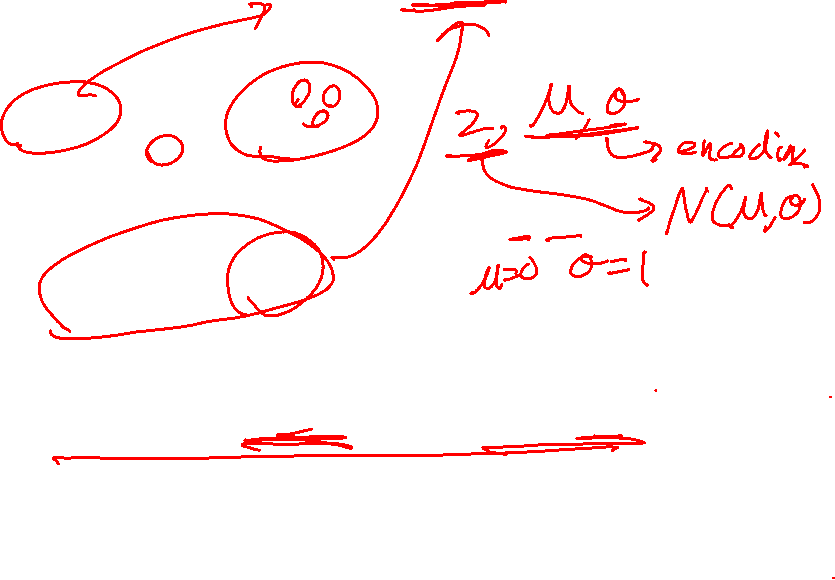 z, μ, σ
encoding
N(μ, σ)
μ=0 σ=1